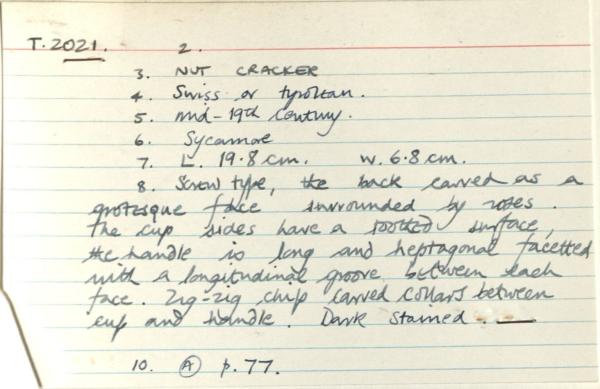 T.2021. 2.
3. NUT CRACKER
4. Swiss or tyrolean.
5. mid-19th Century.
6. Sycamore
7. L. 19.8 cm. W. 6.8 cm.
8. Screw type, the back carved as a
grotesque face surrounded by roses.
The cup sides have a rootled surface,
the handle is long and heptagonal facetted
with a longitudinal groove between each
face. Zig-zig chip carved collars between
cup and handle. Dark stained.
10. A p.77.